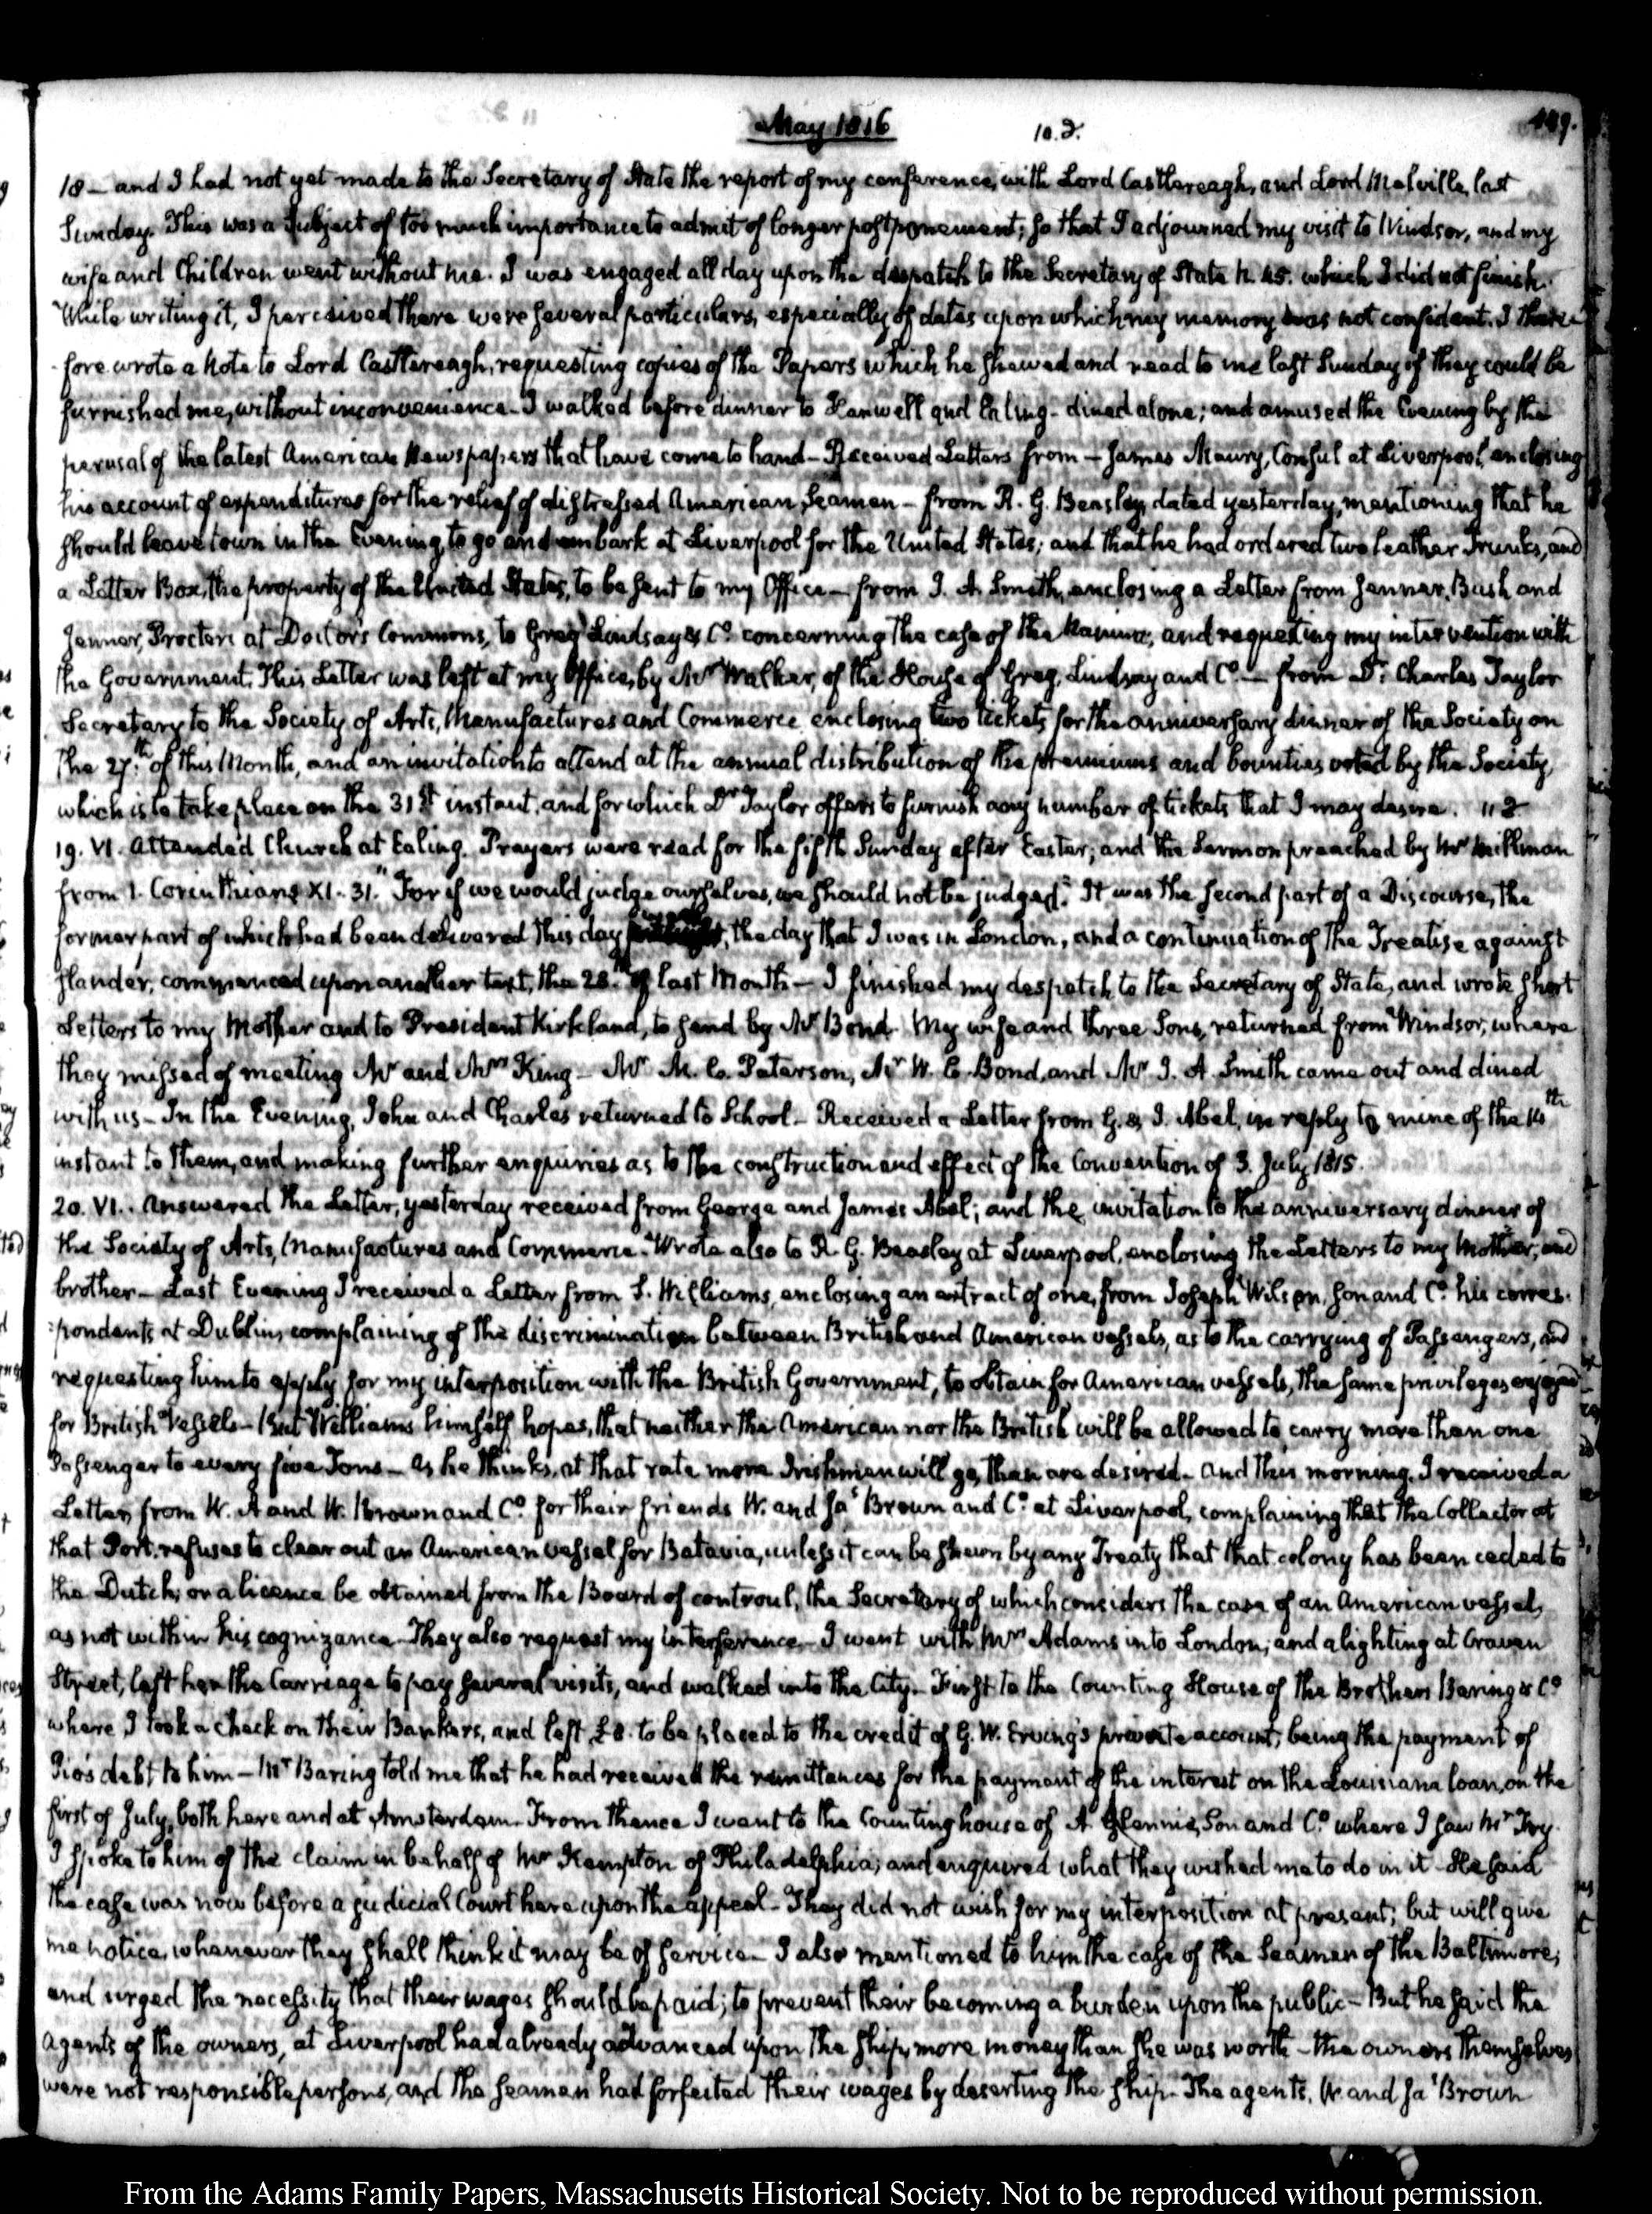 May 1816
10.2.
449.
18 — and I had not yet made to the Secretary of State the report of my conference, with Lord Castlereagh, and Lord Melville, last
Sunday. This was a Subject of too much importance to admit of longer postponement; so that I adjourned my visit to Windsor, and my
wife and Children went without me. I was engaged all day upon the despatch to the Secretary of State N. 45. which I did not finish.
While writing it, I perceived there were several particulars, especially of dates upon which my memory was not confident. I there-
fore wrote a Note to Lord Castlereagh, requesting copies of the Papers which he shewed and read to me last Sunday if they could be
furnished me, without inconvenience. I walked before dinner to Hanwell and Ealing - dined alone; and amused the Evening by the
perusal of the latest American Newspapers that have come to hand - Received Letters from - James Maury, Consul at Liverpool, enclosing
his account of expenditures for the relief of distressed American Seamen - from R. G. Beasley, dated yesterday, mentioning that he
should leave town in the Evening, to go and embark at Liverpool for the United States; and that he had ordered two leather Trunks, and
a Letter Box, the property of the United States, to be sent to my Office - from J. A. Smith, enclosing a Letter from Jenner, Bush and
Jenner, Proctors at Doctor's Commons, to Greg Lindsay & Co. concerning the case of the and requesting my intervention with
the Government. This Letter was left at my Office, by Mr Walker, of the House of Greg, Lindsay and Co. - from Dr. Charles Taylor
Secretary to the Society of Arts, Manufactures and Commerce enclosing two tickets for the anniversary dinner of the Society on
the 27th. of this Month, and an invitation to attend at the annual distribution of the premiums and bounties voted by the Society,
which is to take place on the 31st instant, and for which Dr Taylor offers to furnish any number of tickets that I may desire. 11 2
19. VI. Attended Church at Ealing. Prayers were read for the fifth Sunday after Easter; and the Sermon preached by Mr Millman
from 1. Corinthians XI. 31. "For if we would judge ourselves, we should not be judged." It was the second part of a Discourse, the
former part of which had been delivered this day , the day that I was in London, and a continuation of the Treatise against
slander, commenced upon another text, the 28th of last Month - I finished my despatch to the Secretary of State, and wrote short
Letters to my Mother and to President Kirkland, to send by Mr Bond. My wife and three Sons, returned from Windsor, where
they missed of meeting Mr and Mrs King - Mr M. Co. Paterson, Mr W. C. Bond, and Mr J. A. Smith came out and dined
with us - In the Evening, John and Charles returned to School - Received a Letter from G. & J. Abel, in reply to mine of the 16th
instant to them, and making further enquiries as to the construction and effect of the Convention of 3. July 1815.
20. VI. Answered the Letter, yesterday received from George and James Abel; and the invitation to the anniversary dinner of
the Society of Arts, Manufactures and Commerce. Wrote also to R. G. Beasley at Liverpool, enclosing the Letters to my Mother, and
brother - Last Evening I received a Letter from S. Williams, enclosing an extract of one, from Joseph Wilson, Son and Co. his corres-
pondents at Dublin, complaining of the discrimination between British and American vessels, as to the carrying of Passengers, and
requesting him to apply for my interposition with the British Government, to obtain for American vessels, the same privileges enjoyed
for British Vessels - But Williams himself hopes, that neither the American nor the British will be allowed to carry more than one
Passenger to every five Tons - as he thinks, at that rate more Irishmen will go, than are desired. And this morning, I received a
Letter from W. A and W. Brown and Co. for their friends W. and Jas Brown and Co. at Liverpool, complaining that the Collector at
that Port, refuses to clear out an American vessel for Batavia, unless it can be shewn by any Treaty that that colony has been ceded to
the Dutch; or a licence be obtained from the Board of controul, the Secretary of which considers the case of an American vessel,
as not within his cognizance. They also request my interference - I went with Mrs Adams into London; and alighting at Craven
Street, left her the Carriage to pay several visits, and walked into the City. First to the Counting House of the Brothers Baring & Co
where I took a check on their Bankers, and left £8. to be placed to the credit of G. W. Erving's private account; being the payment of
Pio's debt to him - Mr Baring told me that he had received the remittances for the payment of the interest on the Louisiana loan, on the
first of July, both here and at Amsterdam. From thence I went to the Counting house of A. Glennie, Son and Co. where I saw Mr Ivy.
I spoke to him of the claim in behalf of Mr Kempton of Philadelphia; and enquired what they wished me to do in it. He said
the case was now before a judicial Court here upon the appeal - They did not wish for my interposition at present; but will give
me notice, whenever they shall think it may be of service - I also mentioned to him the case of the Seamen of the Baltimore;
and urged the necessity that their wages should be paid; to prevent their becoming a burden upon the public - But he said the
Agents of the owners, at Liverpool had already advanced upon the ship, more money than she was worth - the owners themselves
were not responsible persons, and the seamen had forfeited their wages by deserting the ship. The agents, W. and Jas Brown
From the Adams Family Papers, Massachusetts Historical Society. Not to be reproduced without permission.